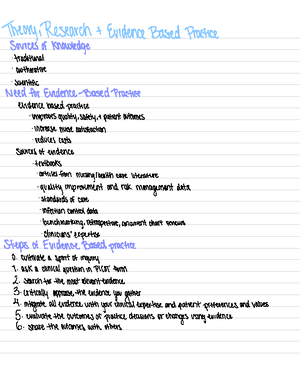 Theory, Research + Evidence Based Practice
Sources of Knowledge
· traditional
· authoritative
· scientific
Need for Evidence-Based Practice
Evidence based practice
· improves quality, safety, + patient outcomes
· increase nurse satisfaction
· reduces costs
Sources of evidence
· textbooks
· articles from nursing/health care literature
· quality improvement and risk management data
· standards of care
· infection control data
· benchmarking, retrospective, or concurrent chart reviews
· clinicians' expertise
Steps of Evidence Based practice
0. cultivate a spirit of inquiry
1. ask a clinical question in PICOT form
2. search for the most relevant evidence
3. critically appraise the evidence you gather
4. integrate all evidence with your clinical expertise and patient preferences and values
5. evaluate the outcomes of practice decisions or changes using evidence
6. share the outcomes with others